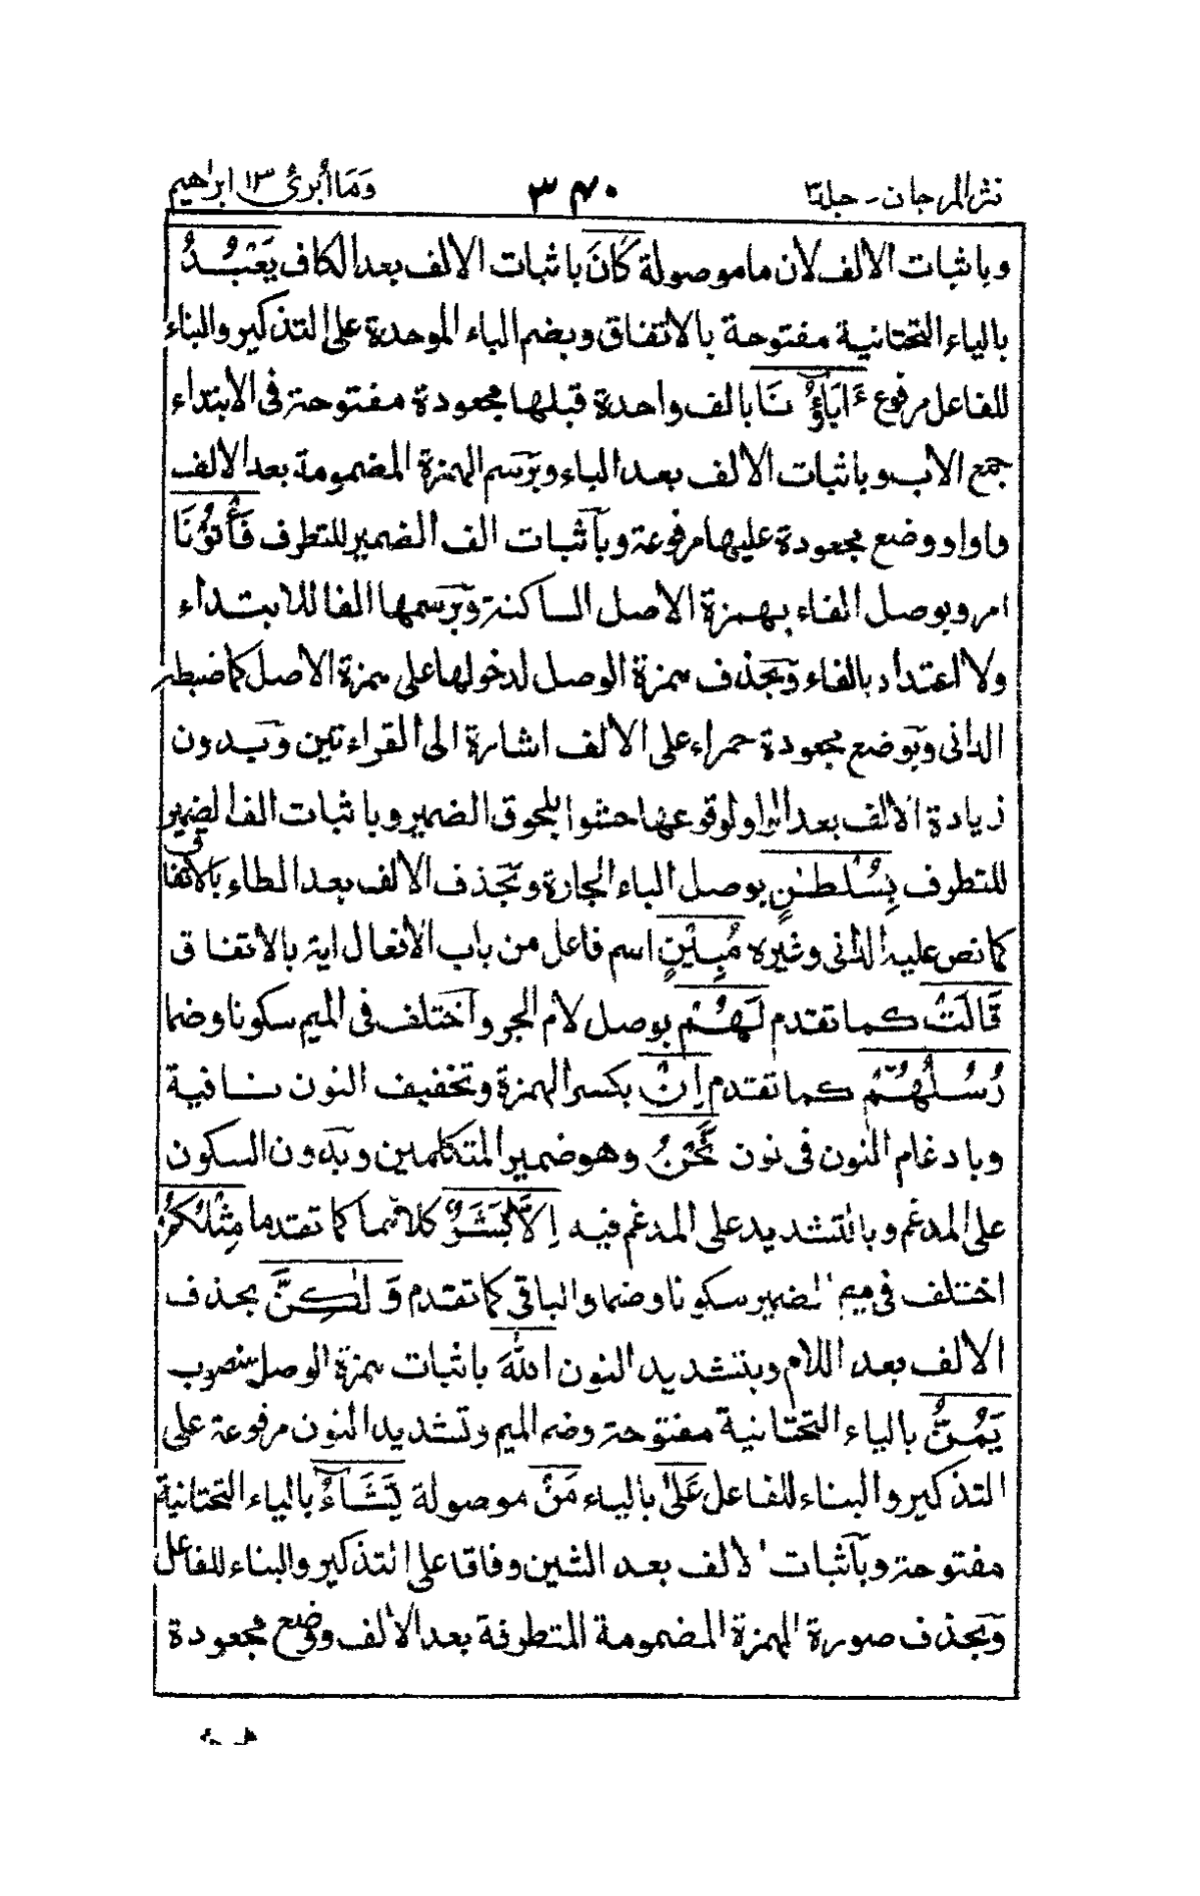 نثر المرجان - جلد٣ ٣٤٠ وَمَا أُبَرِّئُ ١٣ ابراهيم
وباثبات الالف لان ما موصولة كَانَ باثبات الالف بعد الكاف يَعْبُدُ
بالياء التحتانية مفتوحة بالاتفاق وبضم الباء الموحدة على التذكير والبناء
للفاعل مرفوع ءَابَاؤُنَا بالف واحدة قبلها مجعودة مفتوحة فى الابتداء
جمع الاب وباثبات الالف بعد الباء وبرسم الهمزة المضمومة بعد الالف
واوا ووضع مجعودة عليها مرفوعة وبآثبات الف الضمير للتطرف فَأْتُوْنَا
امر وبوصل الفاء بهمزة الاصل الساكنة وبرسمها الفا للابتداء
ولا اعتداد بالفاء وبحذف همزة الوصل لدخولها على همزة الاصل كما ضبطه
الدانى وبوضع مجعودة حمراء على الالف اشارة الى القراءتين وبدون
زيادة الالف بعد الواو لوقوعها حشوا بلحوق الضمير وباثبات الف الضمير
للتطرف بِسُلْطٰنٍ بوصل الباء الجارة وبحذف الالف بعد الطاء بالاتفاق
كما نص عليه الدانى وغيره مُبِيْنٍ اسم فاعل من باب الافعال اية بالاتفاق
قَالَتْ كما تقدم لَهُمْ بوصل لام الجر واختلف فى الميم سكونا وضما
رُسُلُهُمْ كما تقدم اِنْ بكسر الهمزة وتخفيف النون نافية
وبادغام النون فى نون نَحْنُ وهو ضمير المتكلمين وبدون السكون
على المدغم وبالتشديد على المدغم فيه اِلَّا بَشَرٌ كلاهما كما تقدما مِثْلُكُمْ
اختلف فى ميم الضمير سكونا وضما والباقى كما تقدم وَلٰكِنَّ بحذف
الالف بعد اللام وبتشديد النون اللّٰهَ باثبات همزة الوصل منصوب
يَمُنُّ بالياء التحتانية مفتوحة وضم الميم وتشديد النون مرفوعة على
التذكير والبناء للفاعل عَلٰى بالياء مَنْ موصولة يَشَآءُ بالياء التحتانية
مفتوحة وبآثبات الالف بعد الشين وفاقا على التذكير والبناء للفاعل
وبحذف صورة الهمزة المضمومة المتطرفة بعد الالف ووضع مجعودة